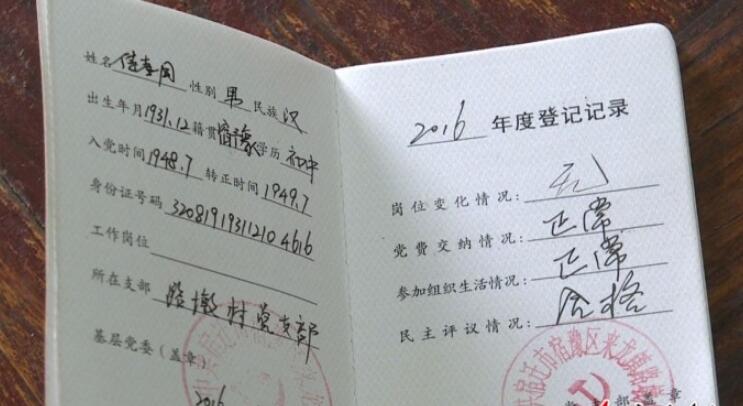 姓名 性别 男 民族 汉
出生年月 1931.12 籍贯 宿豫 学历 初中
入党时间 1948.7 转正时间 1949.7
身份证号码 320819193112104616
工作岗位
所在支部 路墩村党支部
基层党委（盖章）
2016
2016 年度登记记录
岗位变化情况： 无
党费交纳情况： 正常
参加组织生活情况： 正常
民主评议情况： 合格
宿迁市宿豫区来龙镇路
党支部盖章